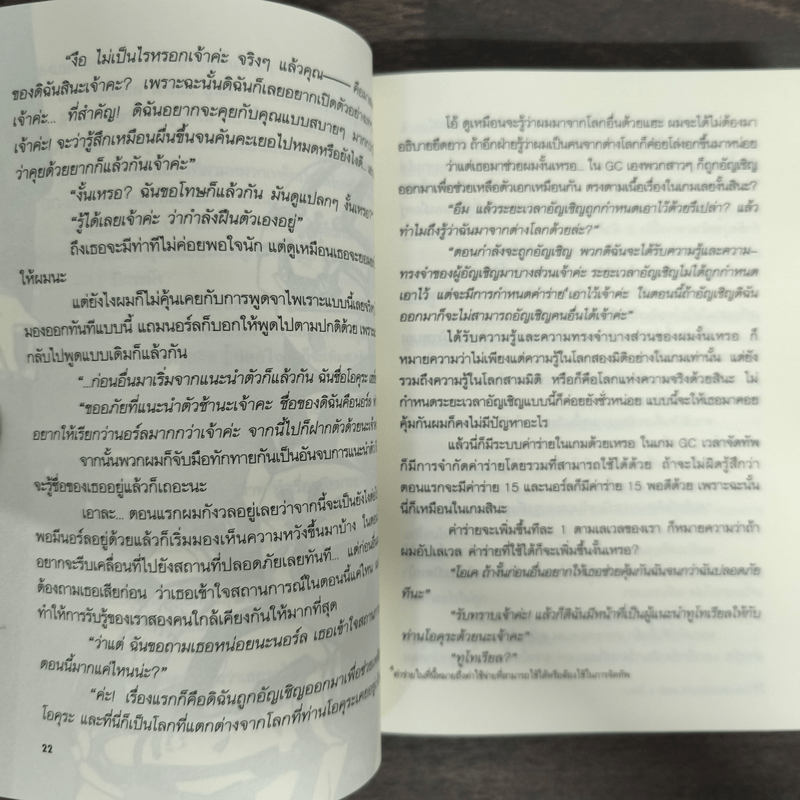 “งือ ไม่เป็นไรหรอกเจ้าค่ะ จริงๆ แล้วคุณ——
ของดิฉันสินะเจ้าคะ? เพราะฉะนั้นดิฉันก็เลยอยากเปิดตัวอย่าง
เจ้าค่ะ... ที่สำคัญ! ดิฉันอยากจะคุยกับคุณแบบสบายๆ
เจ้าค่ะ! จะว่ารู้สึกเหมือนผื่นขึ้นจนคันคะเยอไปหมดหรือยังไงดี...
ว่าคุยด้วยยากก็แล้วกันเจ้าค่ะ”
“งั้นเหรอ? ฉันขอโทษก็แล้วกัน มันดูแปลกๆ งั้นเหรอ?”
“รู้ได้เลยเจ้าค่ะ ว่ากำลังฝืนตัวเองอยู่”
ถึงเธอจะมีท่าทีไม่ค่อยพอใจนัก แต่ดูเหมือนเธอจะยอม
ให้ผมนะ
แต่ยังไงผมก็ไม่คุ้นเคยกับการพูดจาไพเราะแบบนี้เลย
มองออกทันทีแบบนี้ แถมนอร์ลก็บอกให้พูดไปตามปกติด้วย
กลับไปพูดแบบเดิมก็แล้วกัน
“...ก่อนอื่นมาเริ่มจากแนะนำตัวก็แล้วกัน ฉันชื่อโอคุระ
“ขออภัยที่แนะนำตัวช้านะเจ้าคะ ชื่อของดิฉันคือนอร์ล
อยากให้เรียกว่านอร์ลมากกว่าเจ้าค่ะ จากนี้ไปก็ฝากตัวด้วยนะ
จากนั้นพวกผมก็จับมือทักทายกันเป็นอันจบการแนะนำ
จะรู้ชื่อของเธออยู่แล้วก็เถอะนะ
เอาละ... ตอนแรกผมกังวลอยู่เลยว่าจากนี้จะเป็นยังไง
พอมีนอร์ลอยู่ด้วยแล้วก็เริ่มมองเห็นความหวังขึ้นมาบ้าง
อยากจะรีบเคลื่อนที่ไปยังสถานที่ปลอดภัยเลยทันที...
ต้องถามเธอเสียก่อน ว่าเธอเข้าใจสถานการณ์ในตอนนี้แค่ไหน
ทำให้การรับรู้ของเราสองคนใกล้เคียงกันให้มากที่สุด
“ว่าแต่ ฉันขอถามเธอหน่อยนะนอร์ล เธอเข้าใจ
ตอนนี้มากแค่ไหนน่ะ?”
“ค่ะ! เรื่องแรกก็คือดิฉันถูกอัญเชิญออกมาเพื่อ
โอคุระ และที่นี่ก็เป็นโลกที่แตกต่างจากโลกที่ท่านโอคุระ
22
โอ้ ดูเหมือนจะรู้ว่าผมมาจากโลกอื่นด้วยแฮะ ผมจะได้ไม่ต้องมา
อธิบายยืดยาว ถ้าอีกฝ่ายรู้ว่าผมเป็นคนจากต่างโลกก็ค่อยโล่งอกขึ้นมาหน่อย
ว่าแต่เธอมาช่วยผมงั้นเหรอ... ใน GC เองพวกสาวๆ ก็ถูกอัญเชิญ
ออกมาเพื่อช่วยเหลือตัวเอกเหมือนกัน ตรงตามเนื้อเรื่องในเกมเลยงั้นสินะ?
“อืม แล้วระยะเวลาอัญเชิญถูกกำหนดเอาไว้ด้วยรึเปล่า? แล้ว
ทำไมถึงรู้ว่าฉันมาจากต่างโลกด้วยล่ะ?”
“ตอนกำลังจะถูกอัญเชิญ พวกดิฉันจะได้รับความรู้และความ-
ทรงจำของผู้อัญเชิญมาบางส่วนเจ้าค่ะ ระยะเวลาอัญเชิญไม่ได้ถูกกำหนด
เอาไว้ แต่จะมีการกำหนดค่าร่าย*เอาไว้เจ้าค่ะ ในตอนนี้ถ้าอัญเชิญดิฉัน
ออกมาก็จะไม่สามารถอัญเชิญคนอื่นได้เจ้าค่ะ”
ได้รับความรู้และความทรงจำบางส่วนของผมงั้นเหรอ ก็
หมายความว่าไม่เพียงแต่ความรู้ในโลกสองมิติอย่างในเกมเท่านั้น แต่ยัง
รวมถึงความรู้ในโลกสามมิติ หรือก็คือโลกแห่งความจริงด้วยสินะ ไม่
กำหนดระยะเวลาอัญเชิญแบบนี้ก็ค่อยยังชั่วหน่อย แบบนี้จะให้เธอมาคอย
คุ้มกันผมก็คงไม่มีปัญหาอะไร
แล้วนี่ก็มีระบบค่าร่ายในเกมด้วยเหรอ ในเกม GC เวลาจัดทัพ
ก็มีการจำกัดค่าร่ายโดยรวมที่สามารถใช้ได้ด้วย ถ้าจะไม่ผิดรู้สึกว่า
ตอนแรกจะมีค่าร่าย 15 และนอร์ลก็มีค่าร่าย 15 พอดีด้วย เพราะฉะนั้น
นี่ก็เหมือนในเกมสินะ
ค่าร่ายจะเพิ่มขึ้นทีละ 1 ตามเลเวลของเรา ก็หมายความว่าถ้า
ผมอัปเลเวล ค่าร่ายที่ใช้ได้ก็จะเพิ่มขึ้นงั้นเหรอ?
“โอเค ถ้างั้นก่อนอื่นอยากให้เธอช่วยคุ้มกันฉันจนกว่าฉันปลอดภัย
ทีนะ”
“รับทราบเจ้าค่ะ! แล้วก็ดิฉันมีหน้าที่เป็นผู้แนะนำทูโทเรียลให้กับ
ท่านโอคุระด้วยนะเจ้าคะ”
“ทูโทเรียล?”
*ค่าร่ายในที่นี้หมายถึงค่าใช้จ่ายที่สามารถใช้ได้หรือต้องใช้ในการจัดทัพ